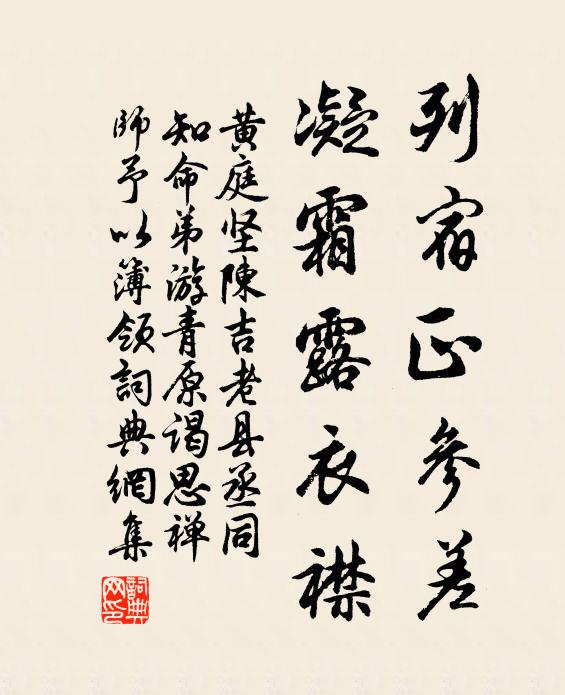 列宿正參差
凝霜露衣襟
黄庭坚陳吉老县丞同
知命弟游青原谒思禅
師予以簿领詞典網集
詞典网印